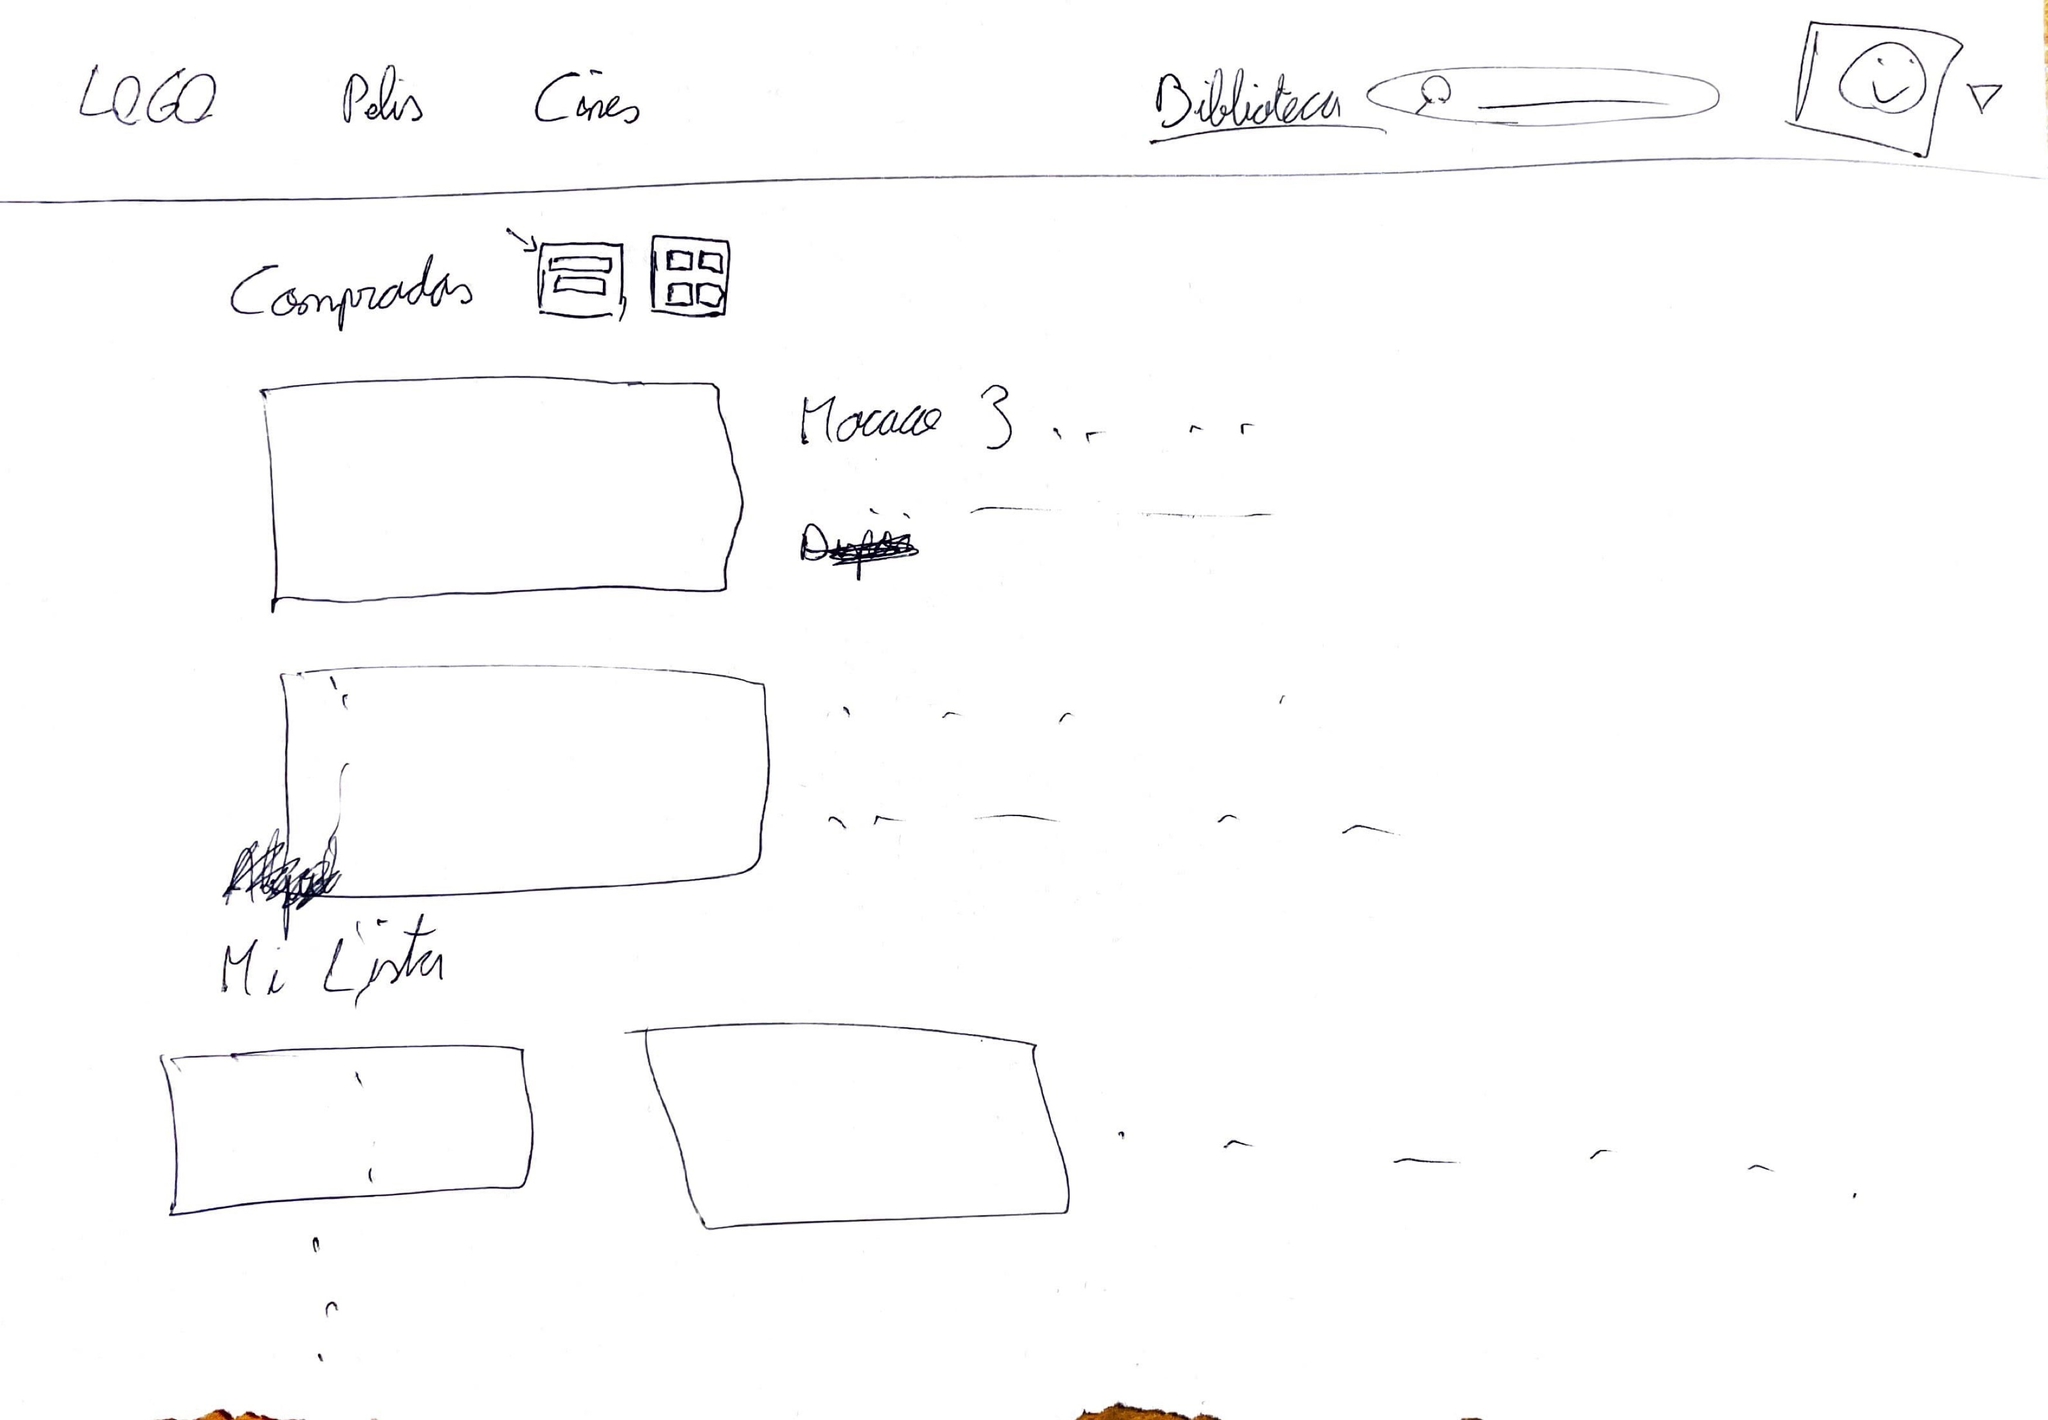 LOGO Pelis Cines Biblioteca
Compradas
Macaco 3
Mi Lista